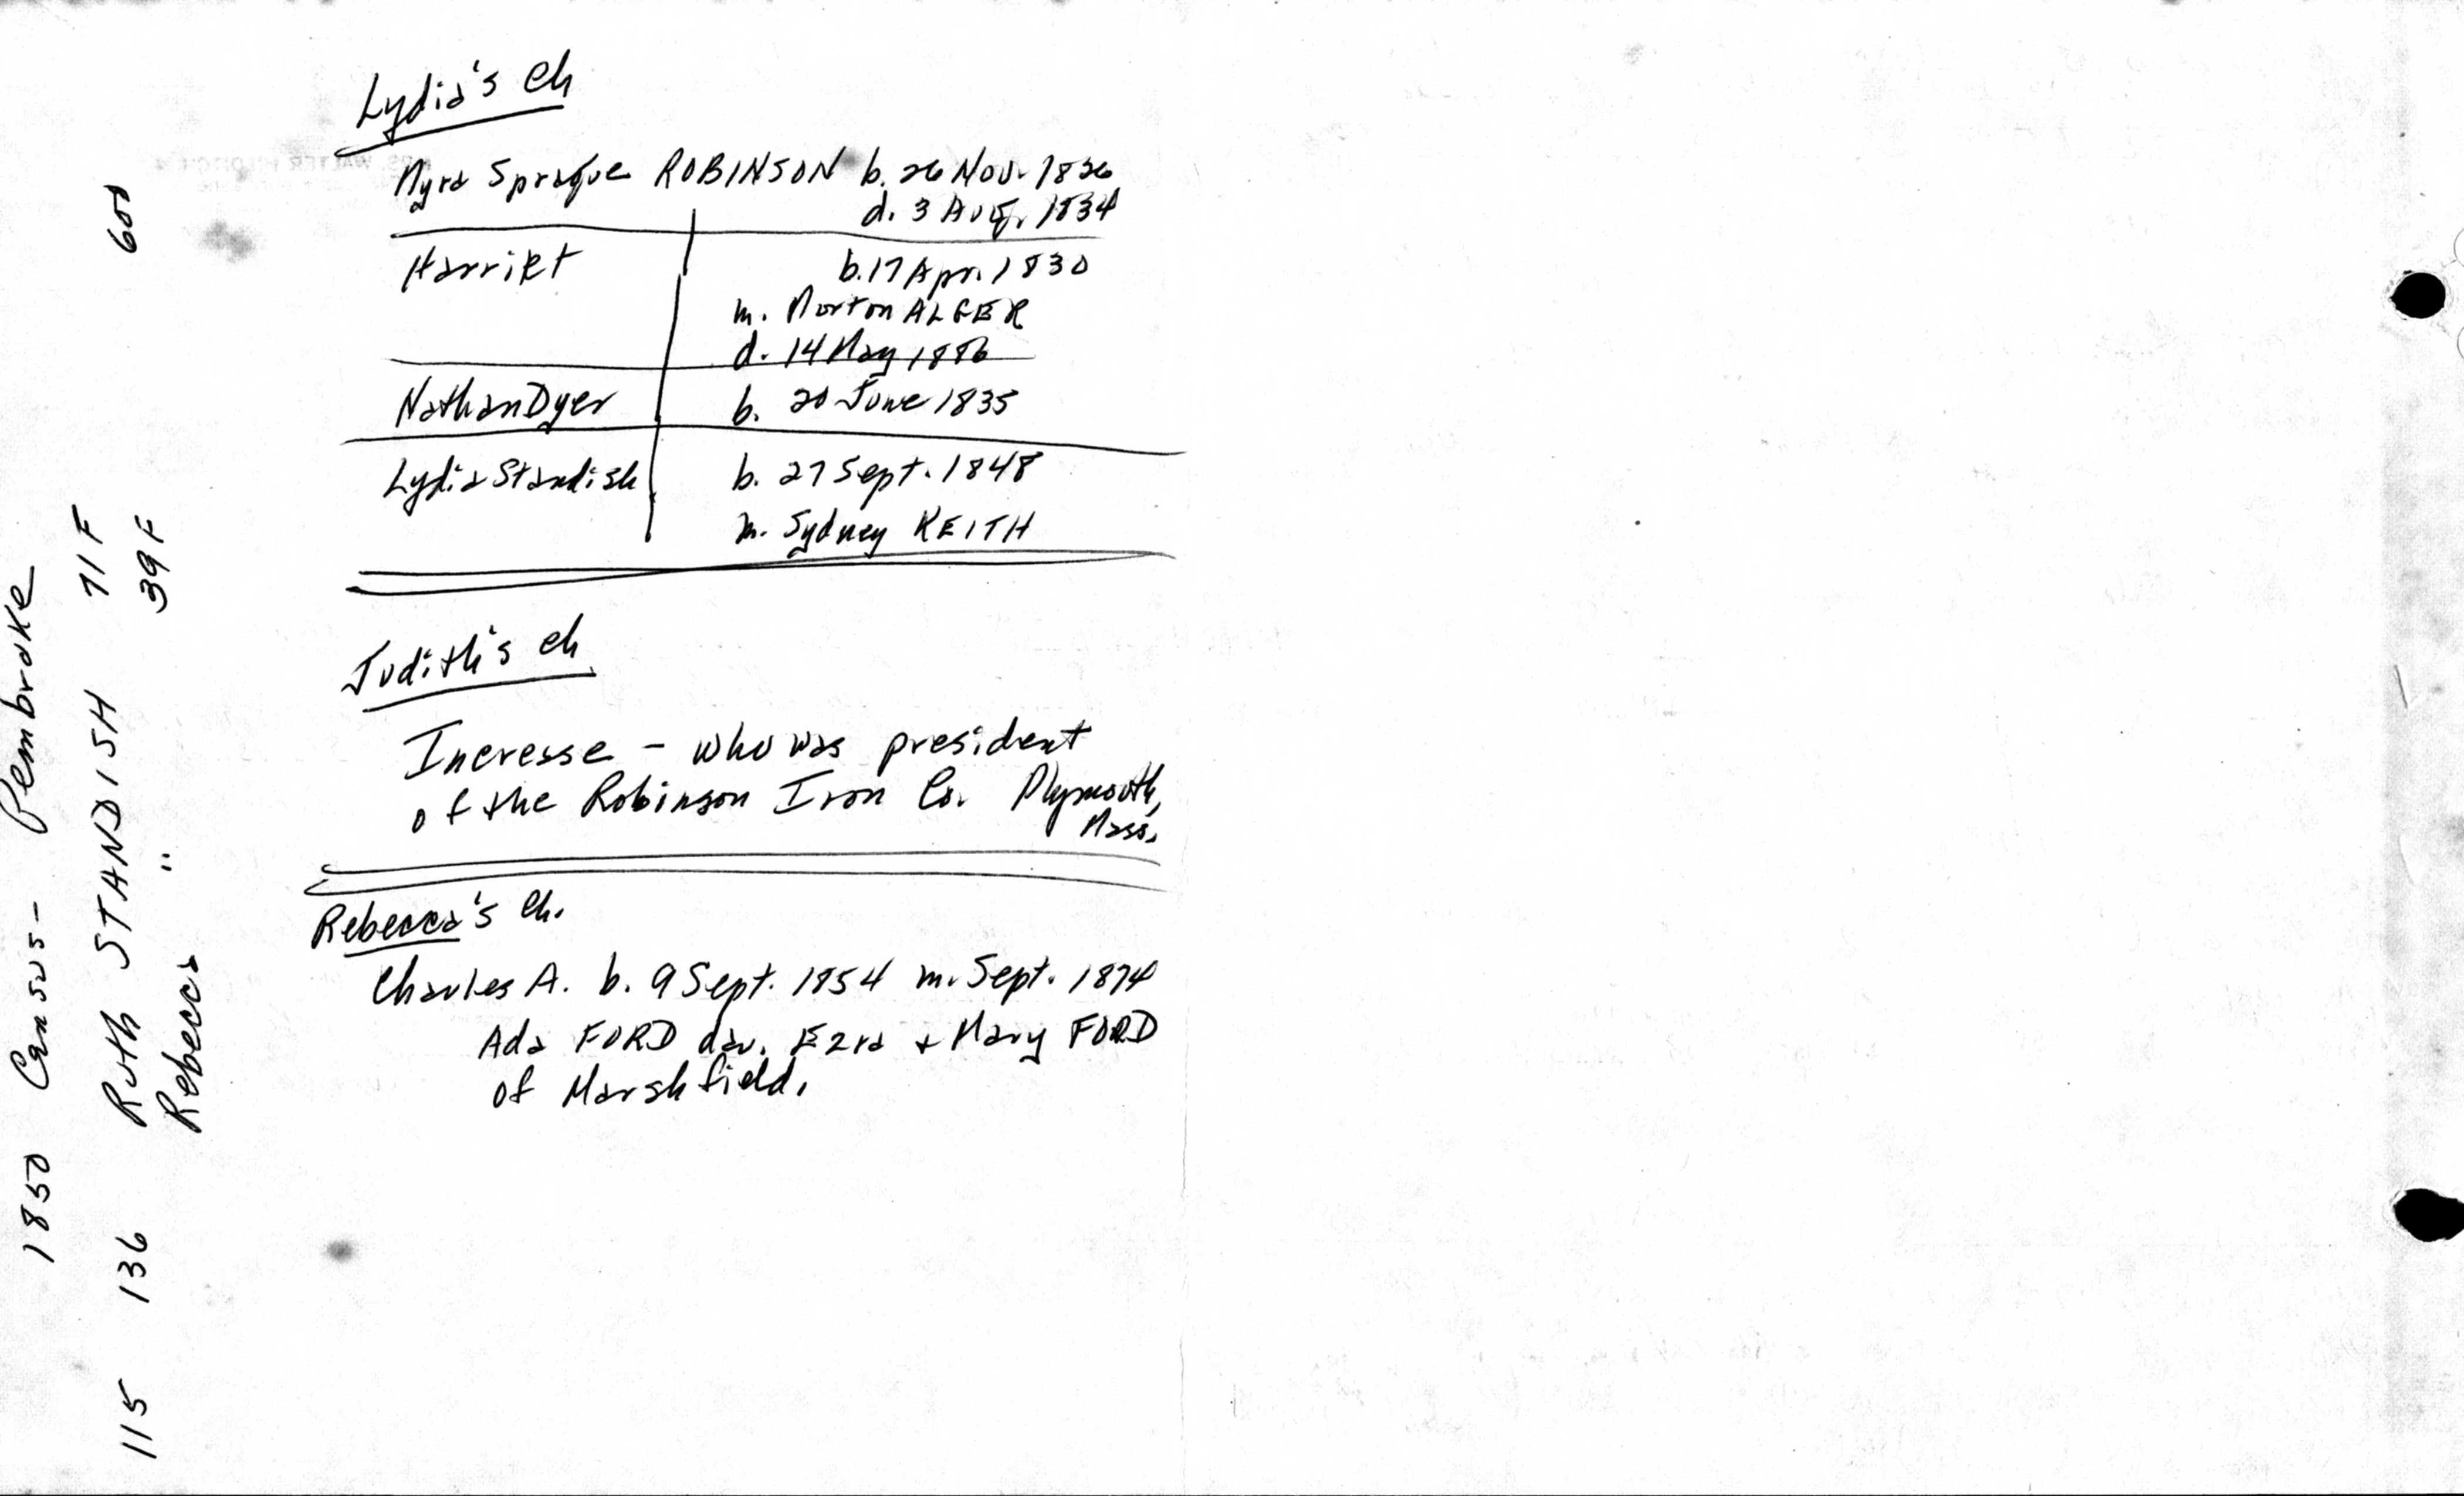 Lydia's Ch
Myra Sprague ROBINSON b. 26 Nov. 1826
d. 3 Aug. 1834
Harriet b. 17 Apr. 1830
m. Morton ALGER
d. 14 May 1886
Nathan Dyer b. 20 June 1835
Lydia Standish b. 27 Sept. 1848
m. Sydney KEITH
Judith's Ch
Increase - who was president
of the Robinson Iron Co. Plymouth,
Mass.
Rebecca's Ch.
Charles A. b. 9 Sept. 1854 m. Sept. 1874
Ada FORD dau. Ezra + Mary FORD
of Marshfield.
1850 Census - Pembroke
115 136 Ruth STANDISH 71 F 600
Rebecca " 39 F